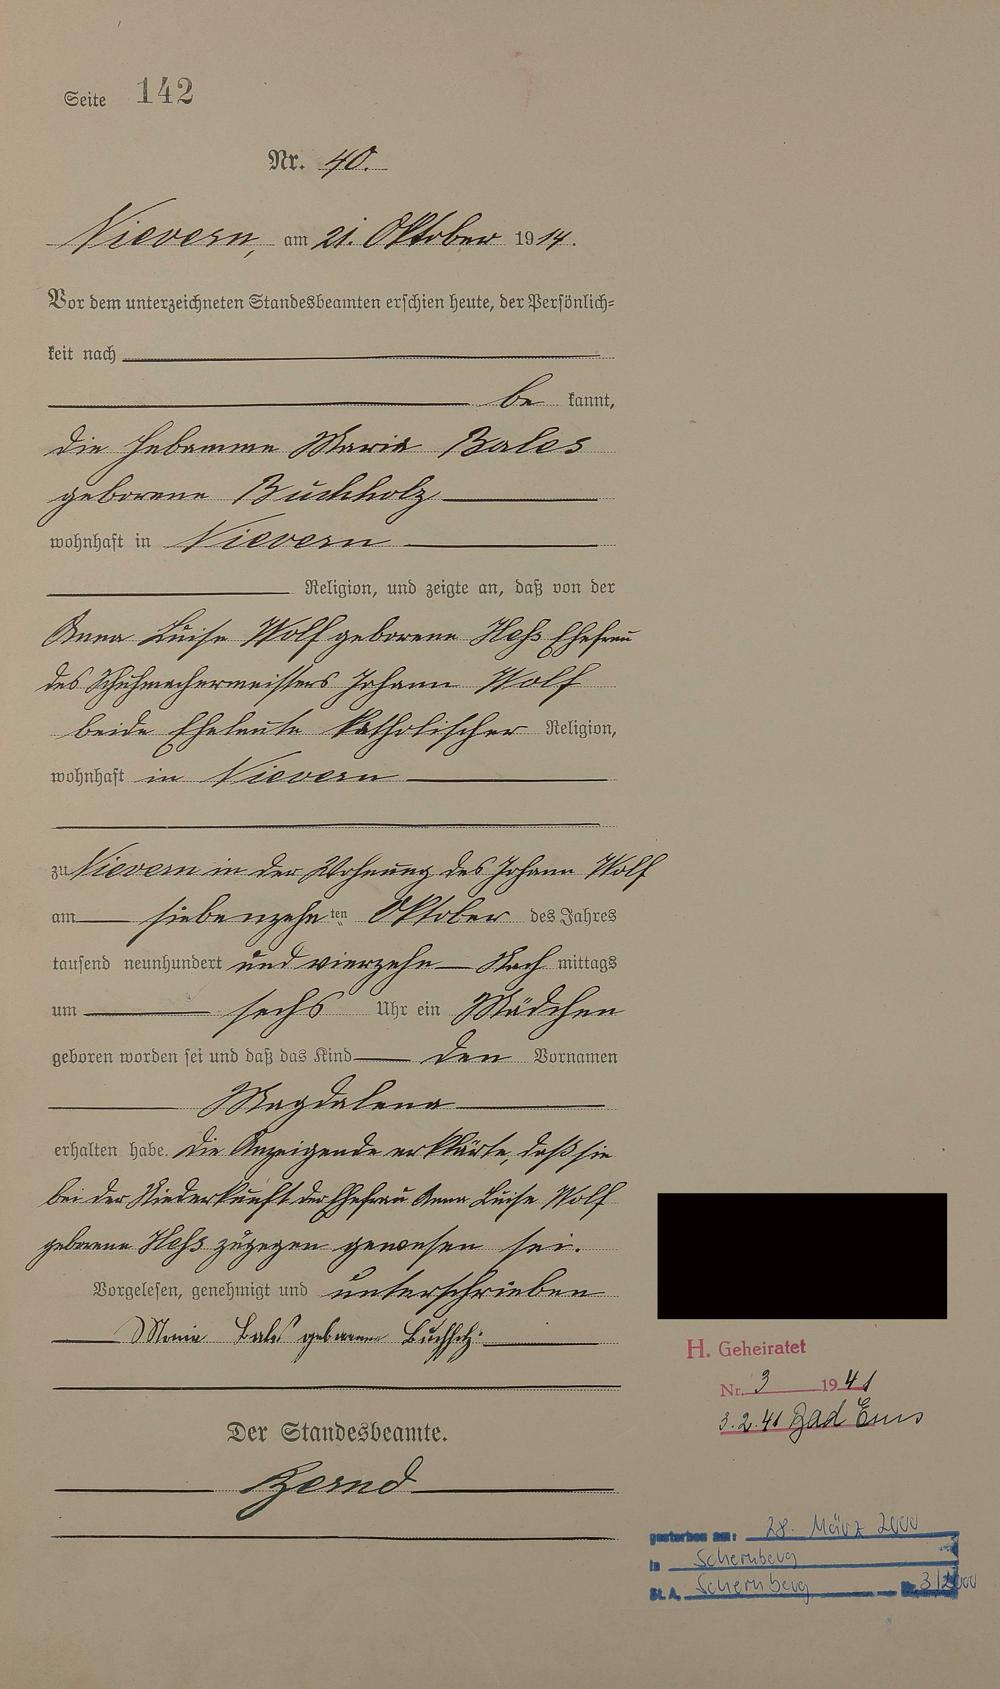 Seite 142
Nr. 40.
Nievern, am 21. Oktober 1914.
Vor dem unterzeichneten Standesbeamten erschien heute, der Persönlich-
keit nach
be kannt,
die Hebamme Maria Bales
geborene Buchholz
wohnhaft in Nievern
Religion, und zeigte an, daß von der
Anna Luise Wolf geborene Heß Ehefrau
des Schuhmachermeisters Johann Wolf
beide Eheleute katholischer Religion,
wohnhaft in Nievern
zu Nievern in der Wohnung des Johann Wolf
am siebenzehn ten Oktober des Jahres
tausend neunhundert und vierzehn Nach mittags
um sechs Uhr ein Mädchen
geboren worden sei und daß das Kind den Vornamen
Magdalena
erhalten habe. Die Anzeigende erklärte, daß sie
bei der Niederkunft der Ehefrau Anna Luise Wolf
geborene Heß zugegen gewesen sei.
Vorgelesen, genehmigt und unterschrieben
Maria Bales geborene Buchholz.
Der Standesbeamte.
Bernd
H. Geheiratet
Nr. 3 1941
3.2.41 Bad Ems
gestorben am: 28. März 2000
in Schernberg
St. A. Schernberg Nr. 3/2000